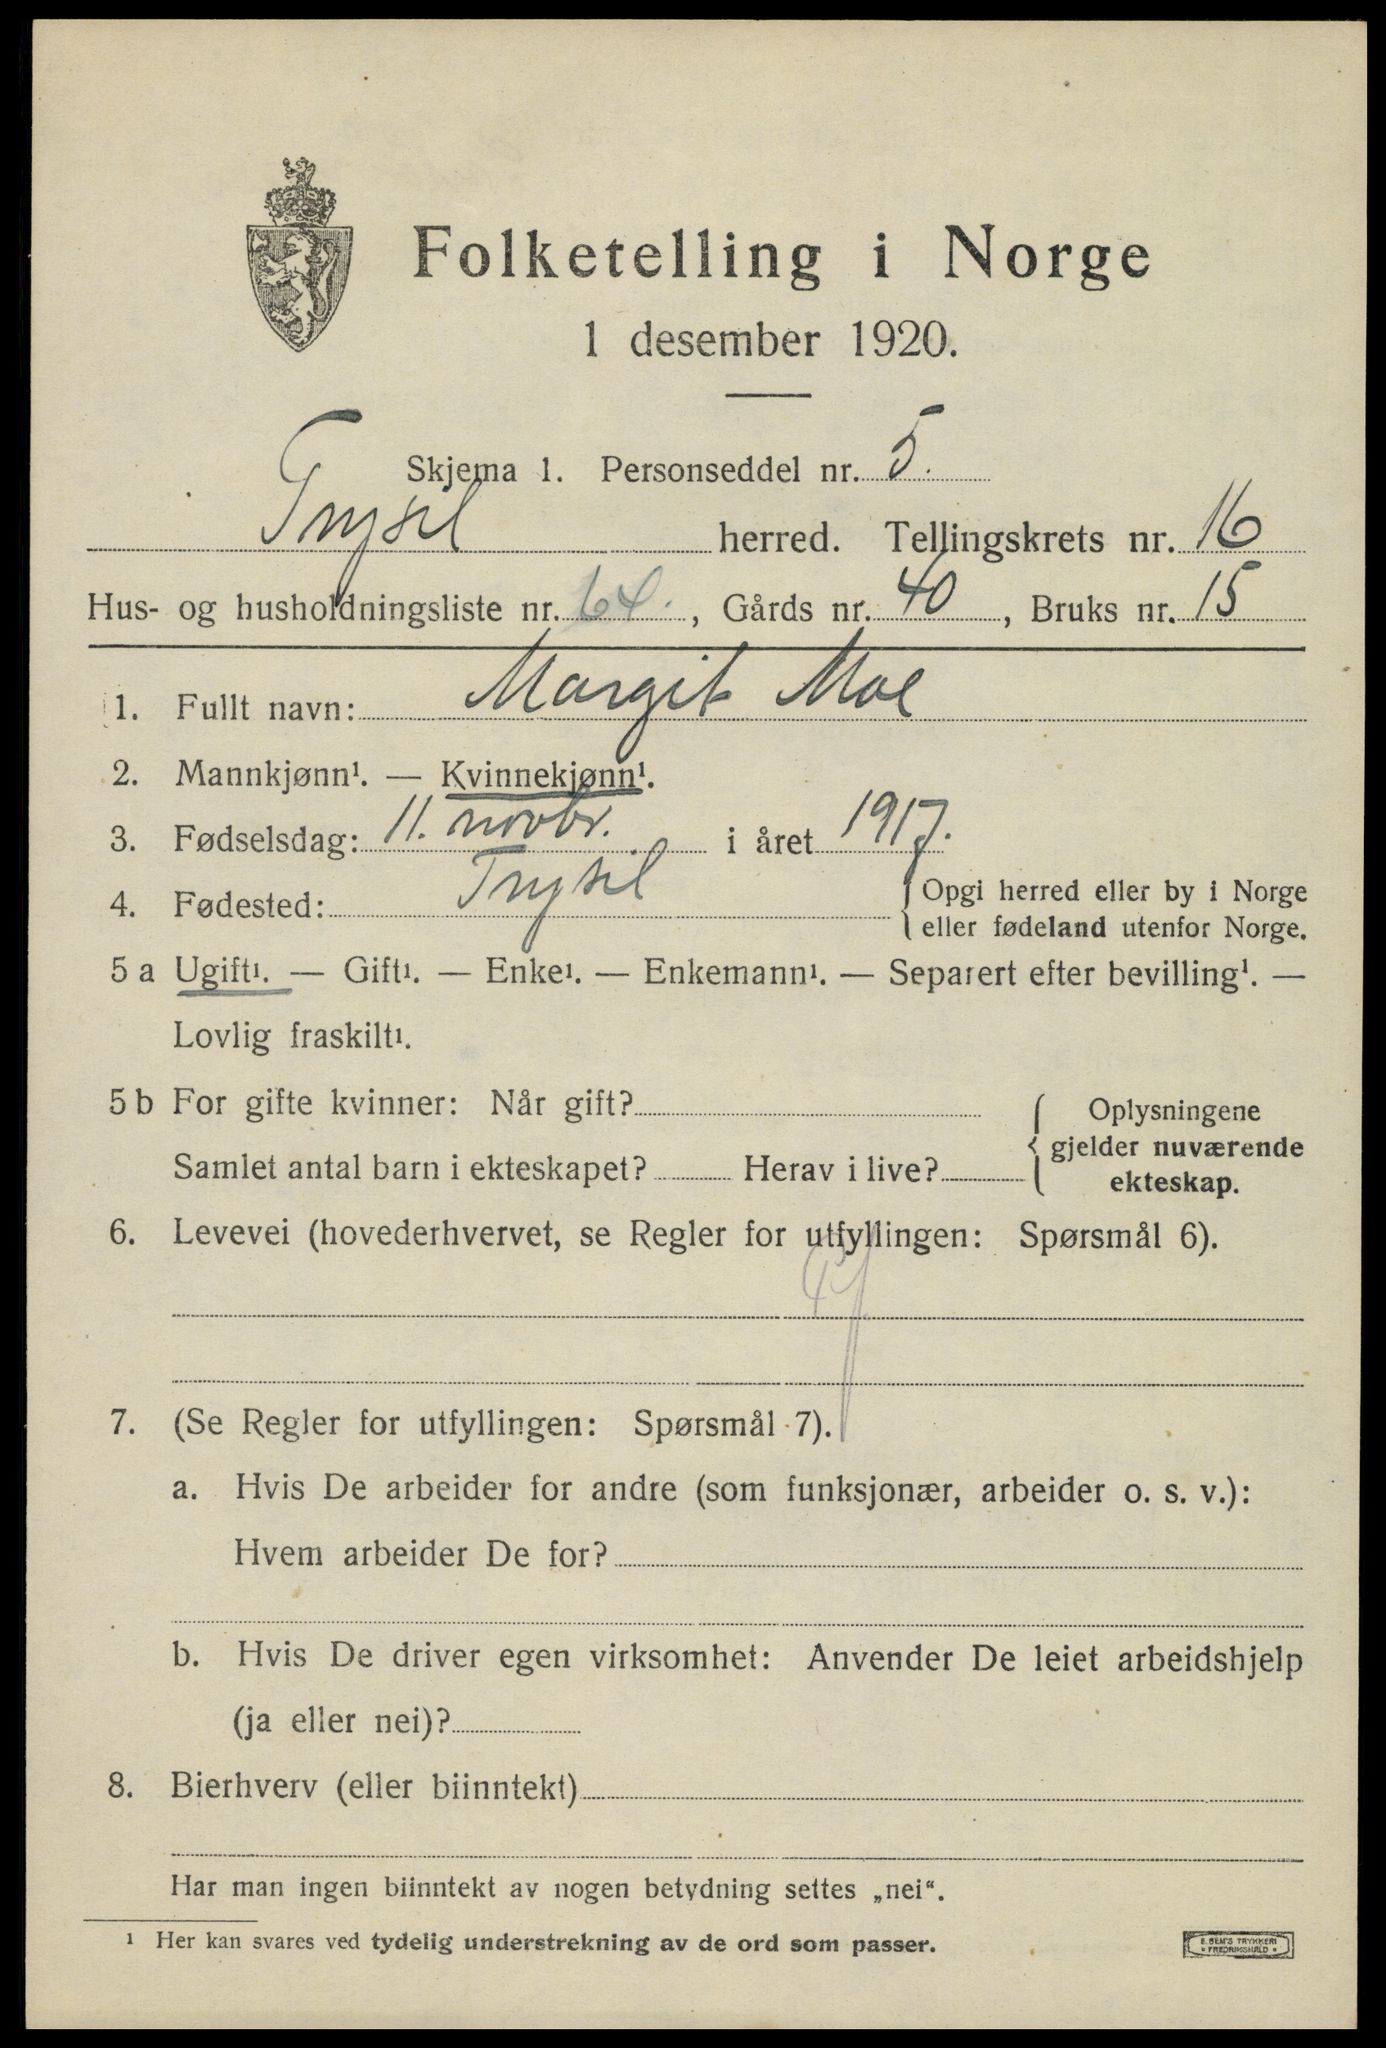 Folketelling i Norge
1 desember 1920.
Skjema 1. Personseddel nr. 5.
Trysil herred. Tellingskrets nr. 16
Hus- og husholdningsliste nr. 64., Gårds nr. 40, Bruks nr. 15
1. Fullt navn: Margit Moe
2. Mannkjønn¹. — Kvinnekjønn¹.
3. Fødselsdag: 11. novbr. i året 1917.
4. Fødested: Trysil { Opgi herred eller by i Norge
eller fødeland utenfor Norge.
5 a Ugift¹. — Gift¹. — Enke¹. — Enkemann¹. — Separert efter bevilling¹. —
Lovlig fraskilt¹.
5 b For gifte kvinner: Når gift? { Oplysningene
gjelder nuværende
Samlet antal barn i ekteskapet? Herav i live?
ekteskap.
6. Levevei (hovederhvervet, se Regler for utfyllingen: Spørsmål 6).
7. (Se Regler for utfyllingen: Spørsmål 7).
a. Hvis De arbeider for andre (som funksjonær, arbeider o. s. v.):
Hvem arbeider De for?
b. Hvis De driver egen virksomhet: Anvender De leiet arbeidshjelp
(ja eller nei)?
8. Bierhverv (eller biinntekt)
Har man ingen biinntekt av nogen betydning settes „nei“.
¹ Her kan svares ved tydelig understrekning av de ord som passer.
E. SEM'S TRYKKERI
• FREDRIKSHALD •